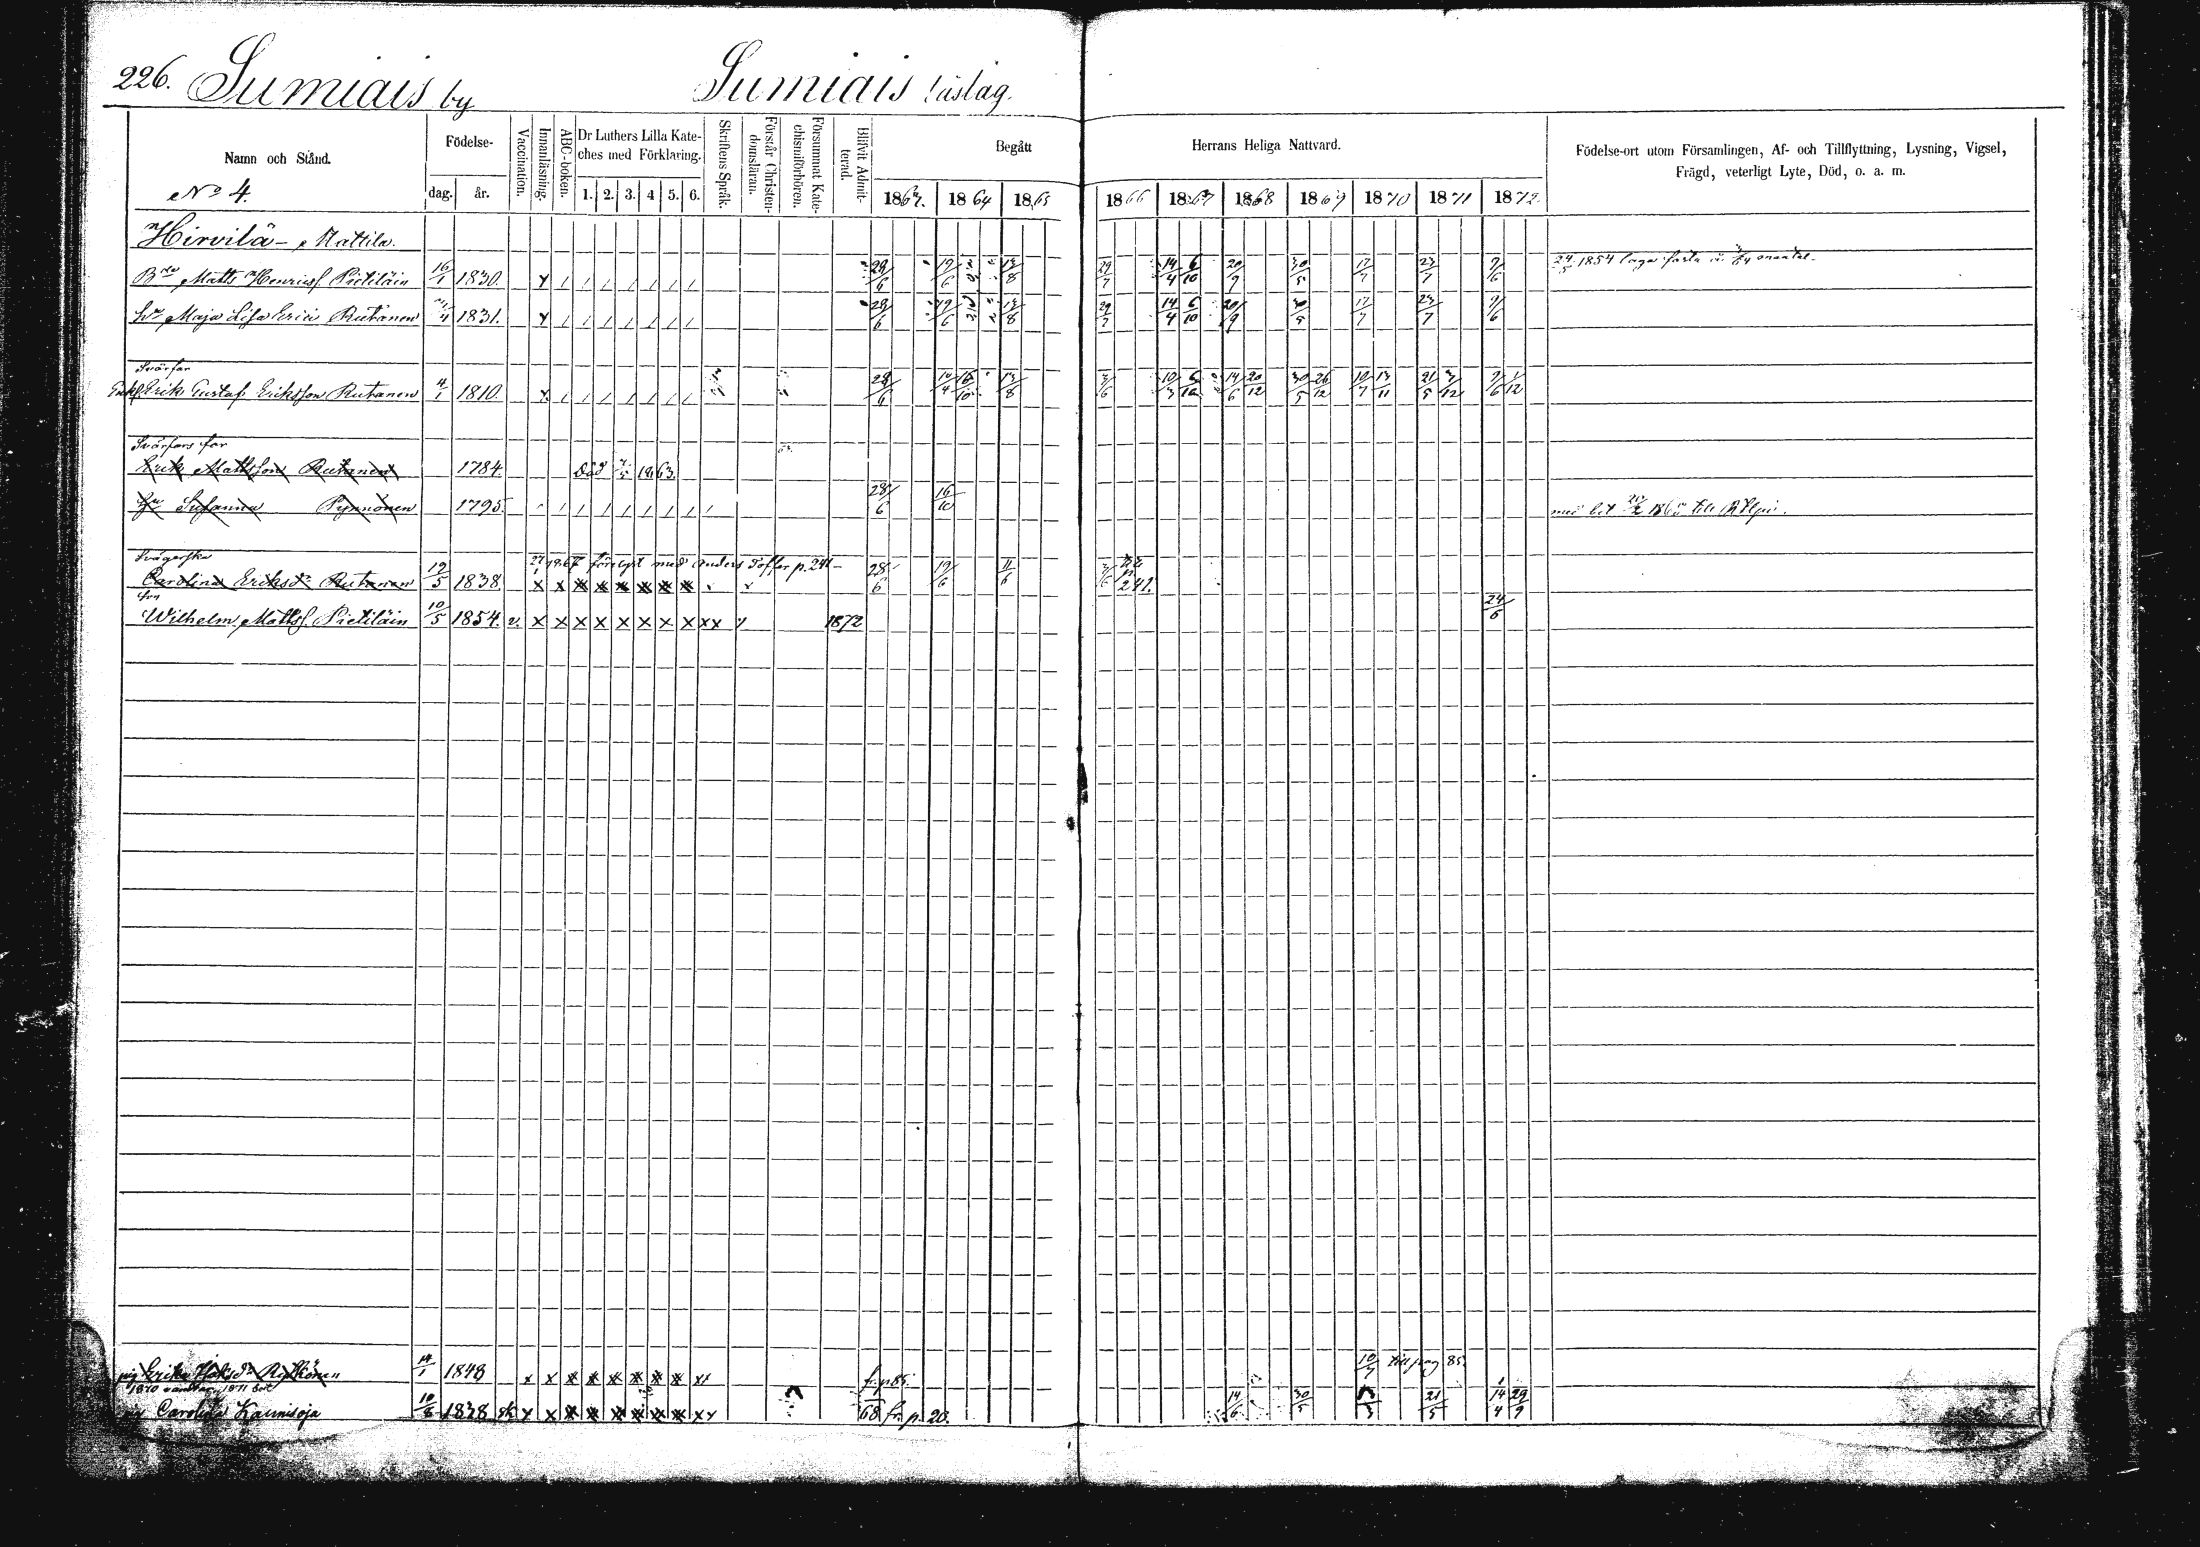 226. Sumiais by Sumiais läslag.
Namn och Stånd. Födelse- dag. år. Vaccination. Innanläsning. ABC-boken. Dr Luthers Lilla Kate- ches med Förklaring. 1. 2. 3. 4 5. 6. Skriftens Språk. Förstår Christen- domsläran. Försummat Kate- chismiförhören. Blifvit Admit- terad. Begått Herrans Heliga Nattvard. Födelse-ort utom Församlingen, Af- och Tillflyttning, Lysning, Vigsel,
Frägd, veterligt Lyte, Död, o. a. m.
No 4. 1863. 1864 1865 1866 1867 1868 1869 1870 1871 1872
Hirvilä - Mattila.
Matts Henricss. Pietiläin 16/1 1830. 28/6 19/6 13/8 29/7 14/4 6/10 20/9 30/5 17/7 23/7 9/6 24/5 1854
Maja Lisa Erici Rutanen 1831. 28/6 19/6 13/8 29/7 14/4 6/10 20/9 30/5 17/7 23/7 9/6
Svärfar
Erik Gustaf Eriksson Rutanen 4/1 1810. 28/6 10/4 16/10 13/8 3/6 10/3 6/10 14/6 20/12 30/5 26/12 10/7 13/11 21/5 3/12 9/6 1/12
Svärfars far
Erik Mattsson Rutanen 1784. död 1863.
Hu Susanna Pynnönen 1795. 28/6 16/10 med bet 1865 till
Svägerska
27/1 1867 förelyst med Anders Toffer p. 241
Carolina Eriksdr Rutanen 19/5 1838. 28/6 19/6 11/6 3/6 p 241.
son
Wilhelm Mattss. Pietiläin 10/5 1854. v. 1872 24/6
pig Erika 14/1 1848 fr. p 85. 10/7 till pag 85.
1871
Carolina Kaunisoja 10/8 1828 68 fr. p. 20. 14/6 30/5 21/5 14/4 29/9